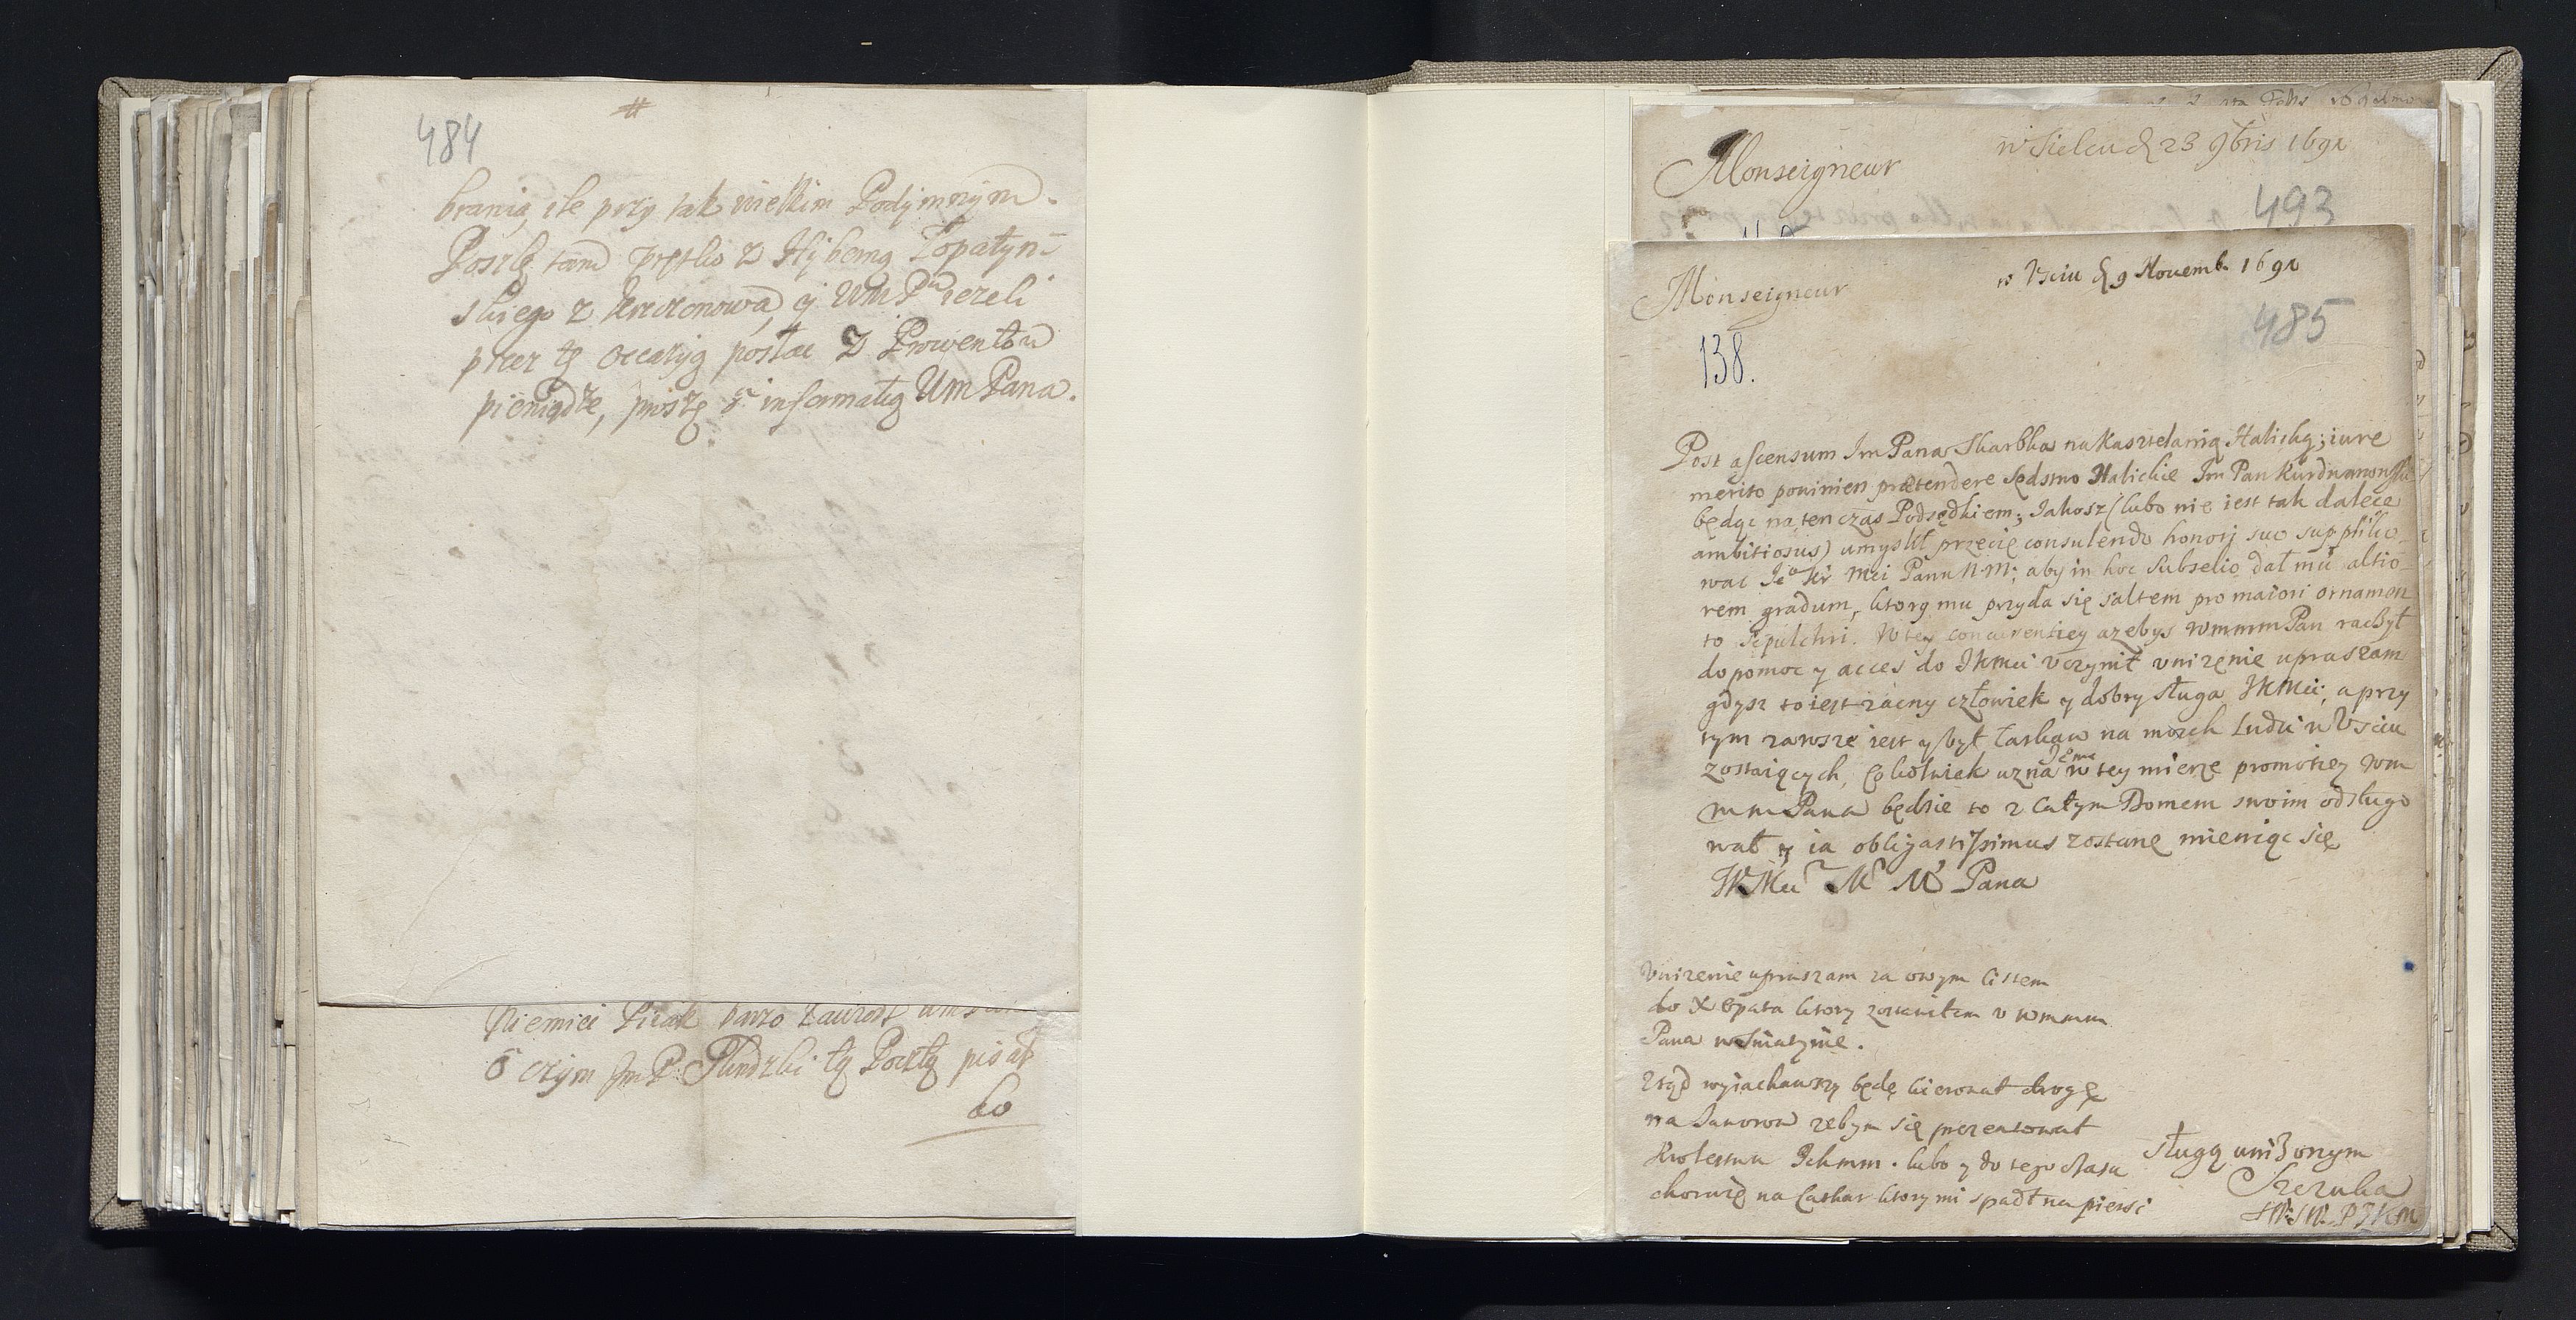 #
484
brania, ile przy tak wielkim Podymnym.
Poszlę tam prętko z Hyberną Łopatyn-
skiego z y Um Pa iezeli
przez tę occasyą posłac z Prowentow
pieniądze, proszę o informatią Um Pana.
Niemiec Pisak barzo
o czym Jm P. tę Pocztą pisał
do
w Sielcu d 23 9bris 1691
Monseigneur
493
w Usciu d 9 Nouemb. 1691
Monseigneur
485
138.
Post ascensum Jm Pana Skarbka na Kasztelanią Halicką; iure
merito powinien prætendere Sędstwo Halickie Jm Pan
będąc na ten czas Podsędkiem; Jakosz (lubo nie iest tak dalece
ambitiosus) umyslił przecię consulendo honori suo suppliko-
wac Je° Kr Mci Panu N M; aby in hoc Subselio dał mu altio-
rem gradum, ktory mu przyda się saltem pro maiori ornamen
to sepulchri. W tey concurentiey azebys WmmmPan raczył
dopomoc y acces do JKMci uczynił unizenie upraszam
gdysz to iest zacny człowiek y dobry sługa JKMci; a przy
tym zawsze iest y był łaskaw na moich Ludzi w Usciu
zostaiących, Cokolwiek uzna w tey mierze promotiey Wm
mm Pana będzie to z Całym Domem swoim odsługo
wał y ia obligatissimus zostanę mieniąc się
M M Pana
Unizenie upraszam za owym listem
do X Opata ktory zostawiłem u Wmmm
Pana w Sniatynie.
Ztąd wyiachawszy będę kierował drogę
na Jaworow zebym się prezentował
Krolestwu Ichmm. lubo y do tego czasu
choruię na Cathar ktory mi spadł na piersi
sługą uniżonym
Szczuka